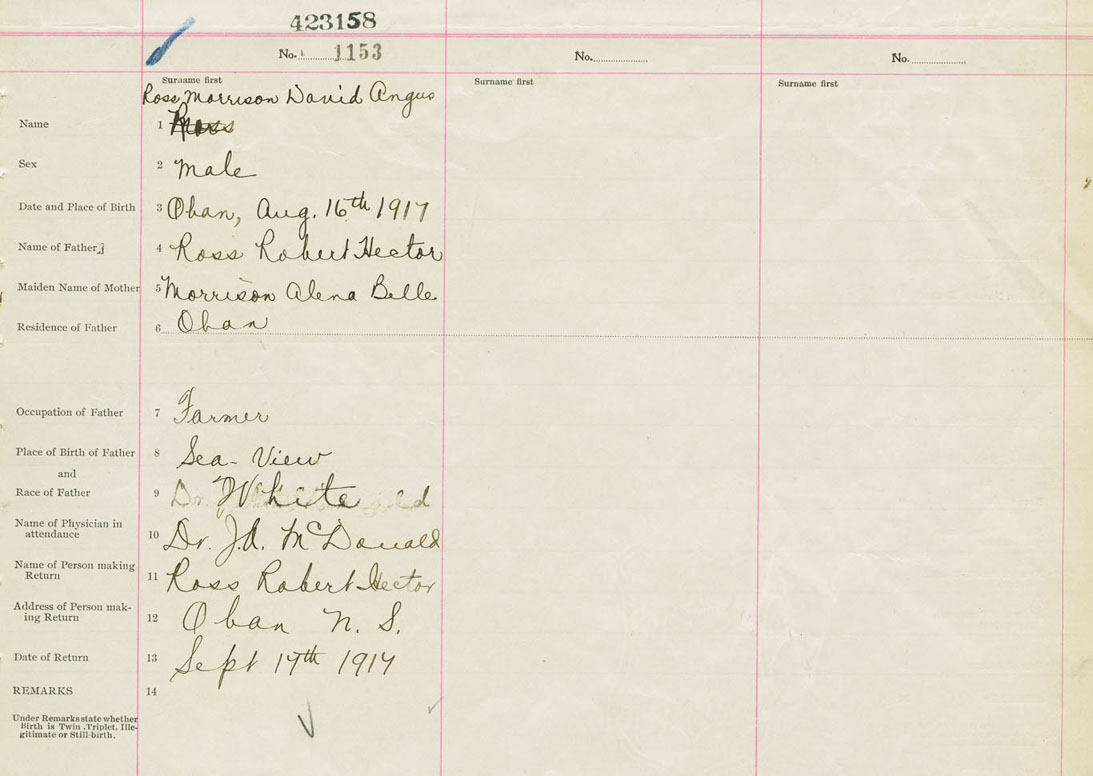 423158
No. 1153
No.
No.
Surname first
Surname first
Surname first
Ross, Morrison David Angus
Name 1 Ross
Sex 2 Male
Date and Place of Birth 3 Oban, Aug. 16th 1917
Name of Father 4 Ross Robert Hector
Maiden Name of Mother 5 Morrison Alena Belle
Residence of Father 6 Oban
Occupation of Father 7 Farmer
Place of Birth of Father 8 Sea-View
and
Race of Father 9 White
Name of Physician in
attendance 10 Dr. J.A. McDonald
Name of Person making
Return 11 Ross Robert Hector
Address of Person mak-
ing Return 12 Oban N. S.
Date of Return 13 Sept 17th 1917
REMARKS 14
Under Remarks state whether
Birth is Twin, Triplet, Ille-
gitimate or Still-birth.